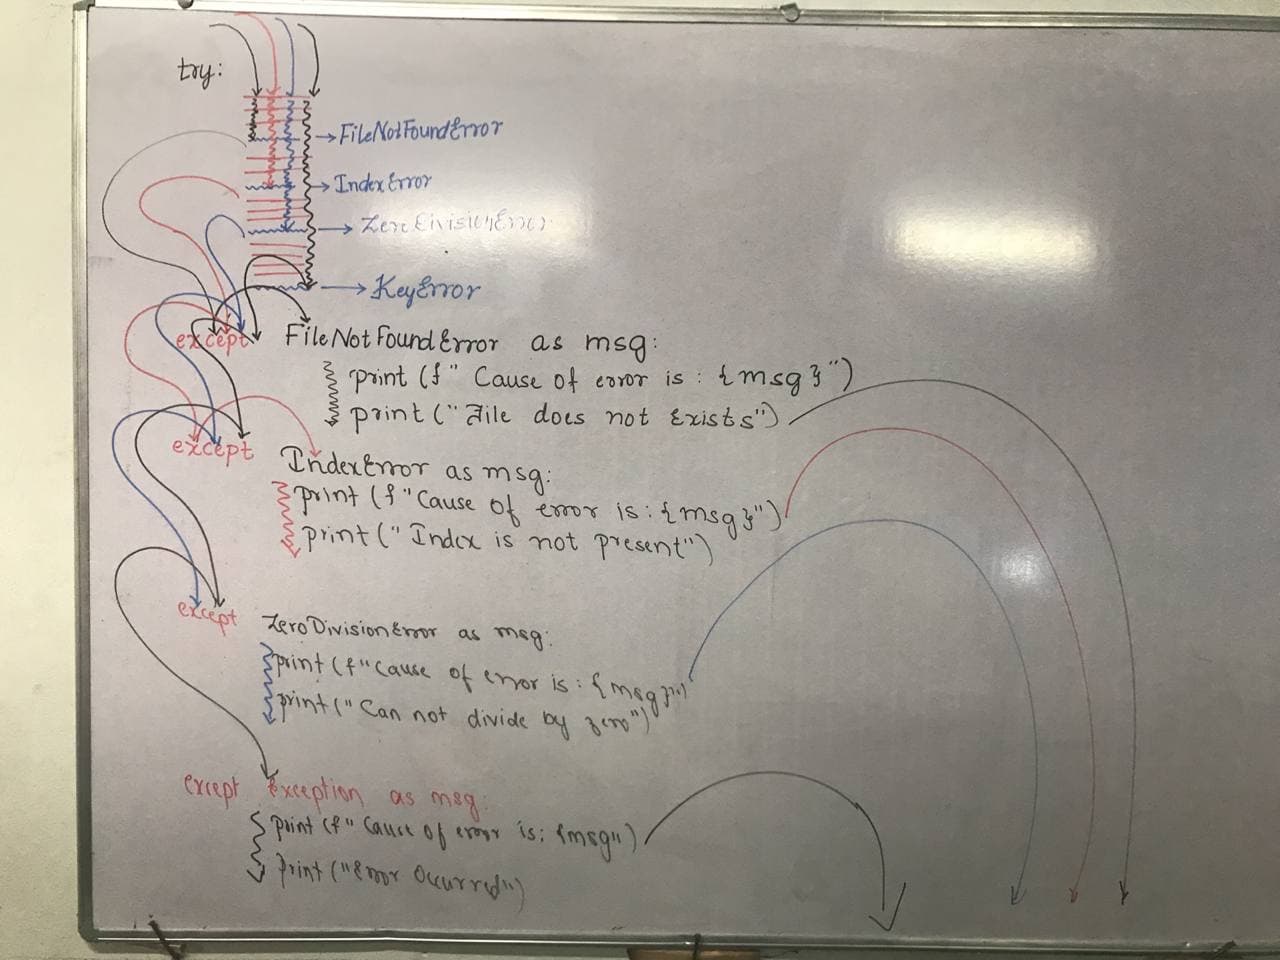 try:
FileNotFoundError
IndexError
ZeroDivisionError
KeyError
except FileNotFoundError as msg:
print (f" Cause of error is : {msg}")
print ("File does not Exists")
except IndexError as msg:
print (f "Cause of error is : {msg}")
print (" Index is not present")
except ZeroDivisionError as msg:
print (f"Cause of error is : {msg}")
print (" Can not divide by zero")
except Exception as msg:
print (f" Cause of error is: {msg")
print ("Error Occurred")